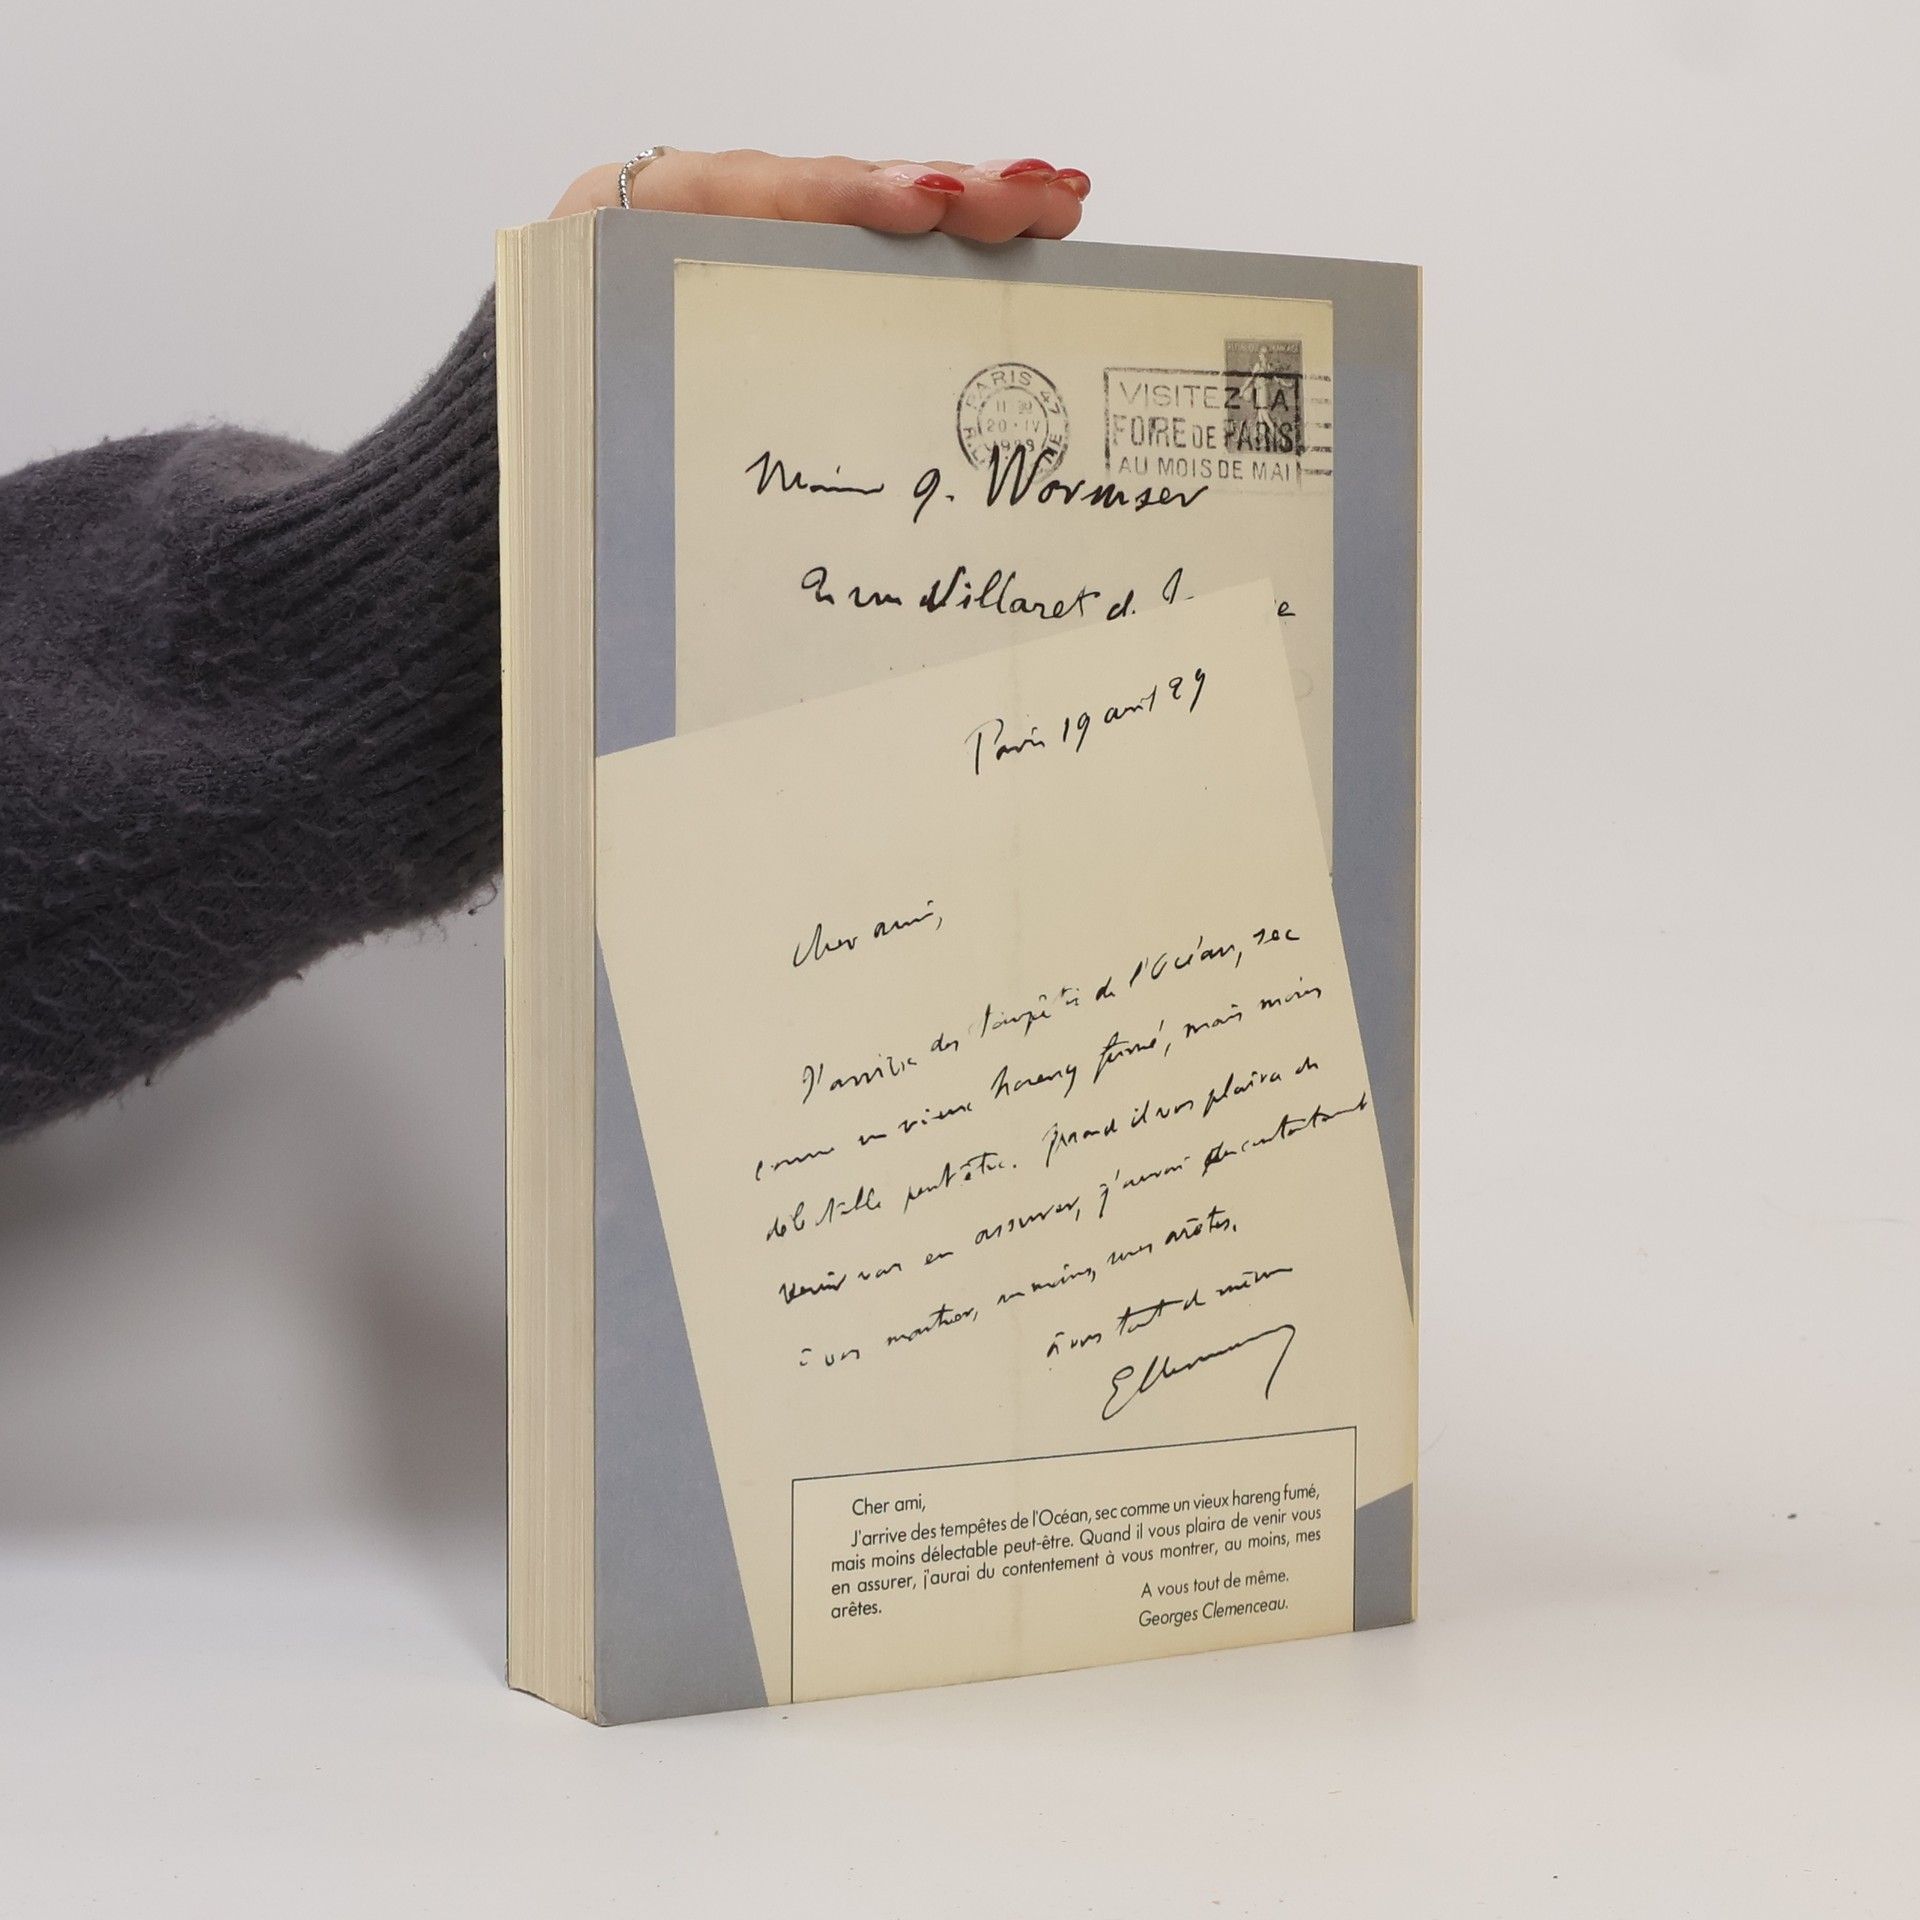 PARIS 47
20 · IV
VISITEZ LA
FOIRE DE PARIS
AU MOIS DE MAI
G. Wormser
rue Villaret d.
Paris 19 avril 29
Cher ami,
J'arrive des tempêtes de l'Océan, sec
comme un vieux hareng fumé, mais moins
délectable peut-être. Quand il vous plaira de
venir vous en assurer, j'aurai du contentement
à vous montrer, au moins, mes arêtes.
à vous tout de même
Cher ami,
J'arrive des tempêtes de l'Océan, sec comme un vieux hareng fumé,
mais moins délectable peut-être. Quand il vous plaira de venir vous
en assurer, j'aurai du contentement à vous montrer, au moins, mes
arêtes.
A vous tout de même.
Georges Clemenceau.